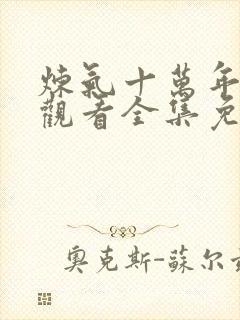 煉氣十萬年
觀看全集免
奧克斯-蘇尔